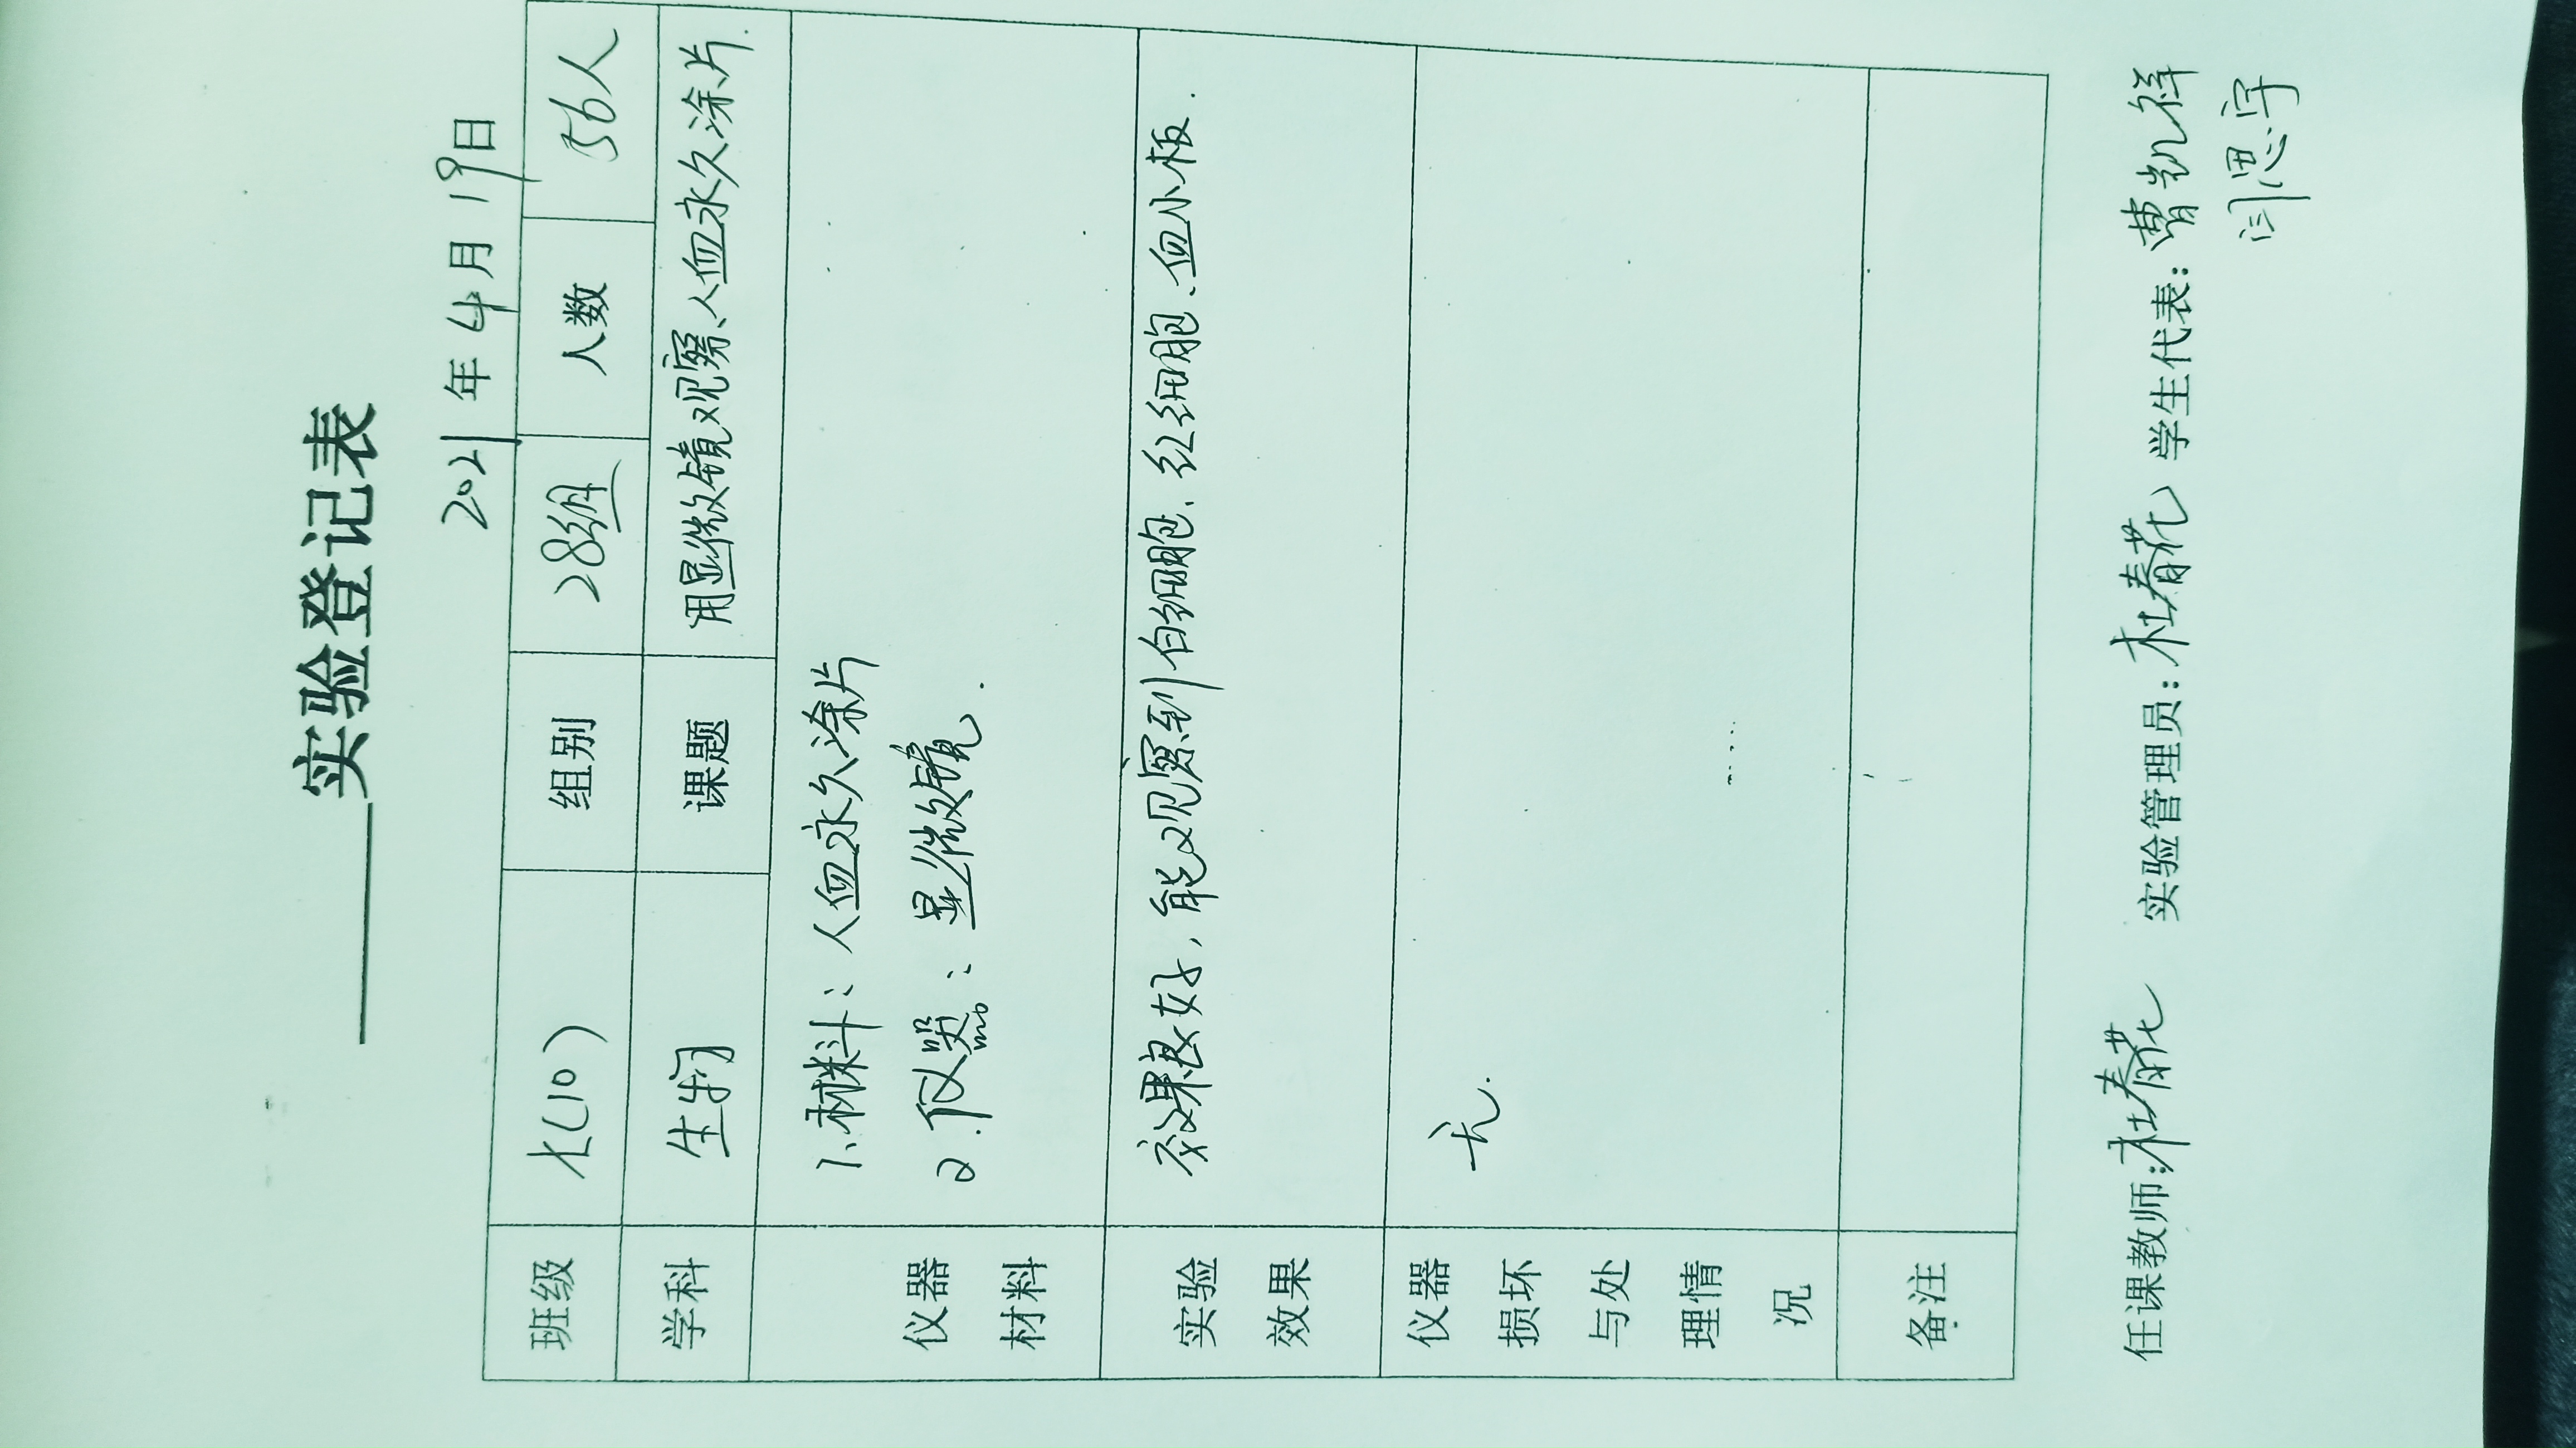 实验登记表
2021年4月19日
班级 七(10) 组别 28组 人数 56人
学科 生物 课题 用显微镜观察人血永久涂片.
仪器材料
1.材料:人血永久涂片
2.仪器:显微镜.
实验效果 效果良好,能观察到白细胞、红细胞、血小板.
仪器损坏与处理情况 无.
备注
任课教师:杜春花 实验管理员:杜春花 学生代表:曹凯祥
闫思宇